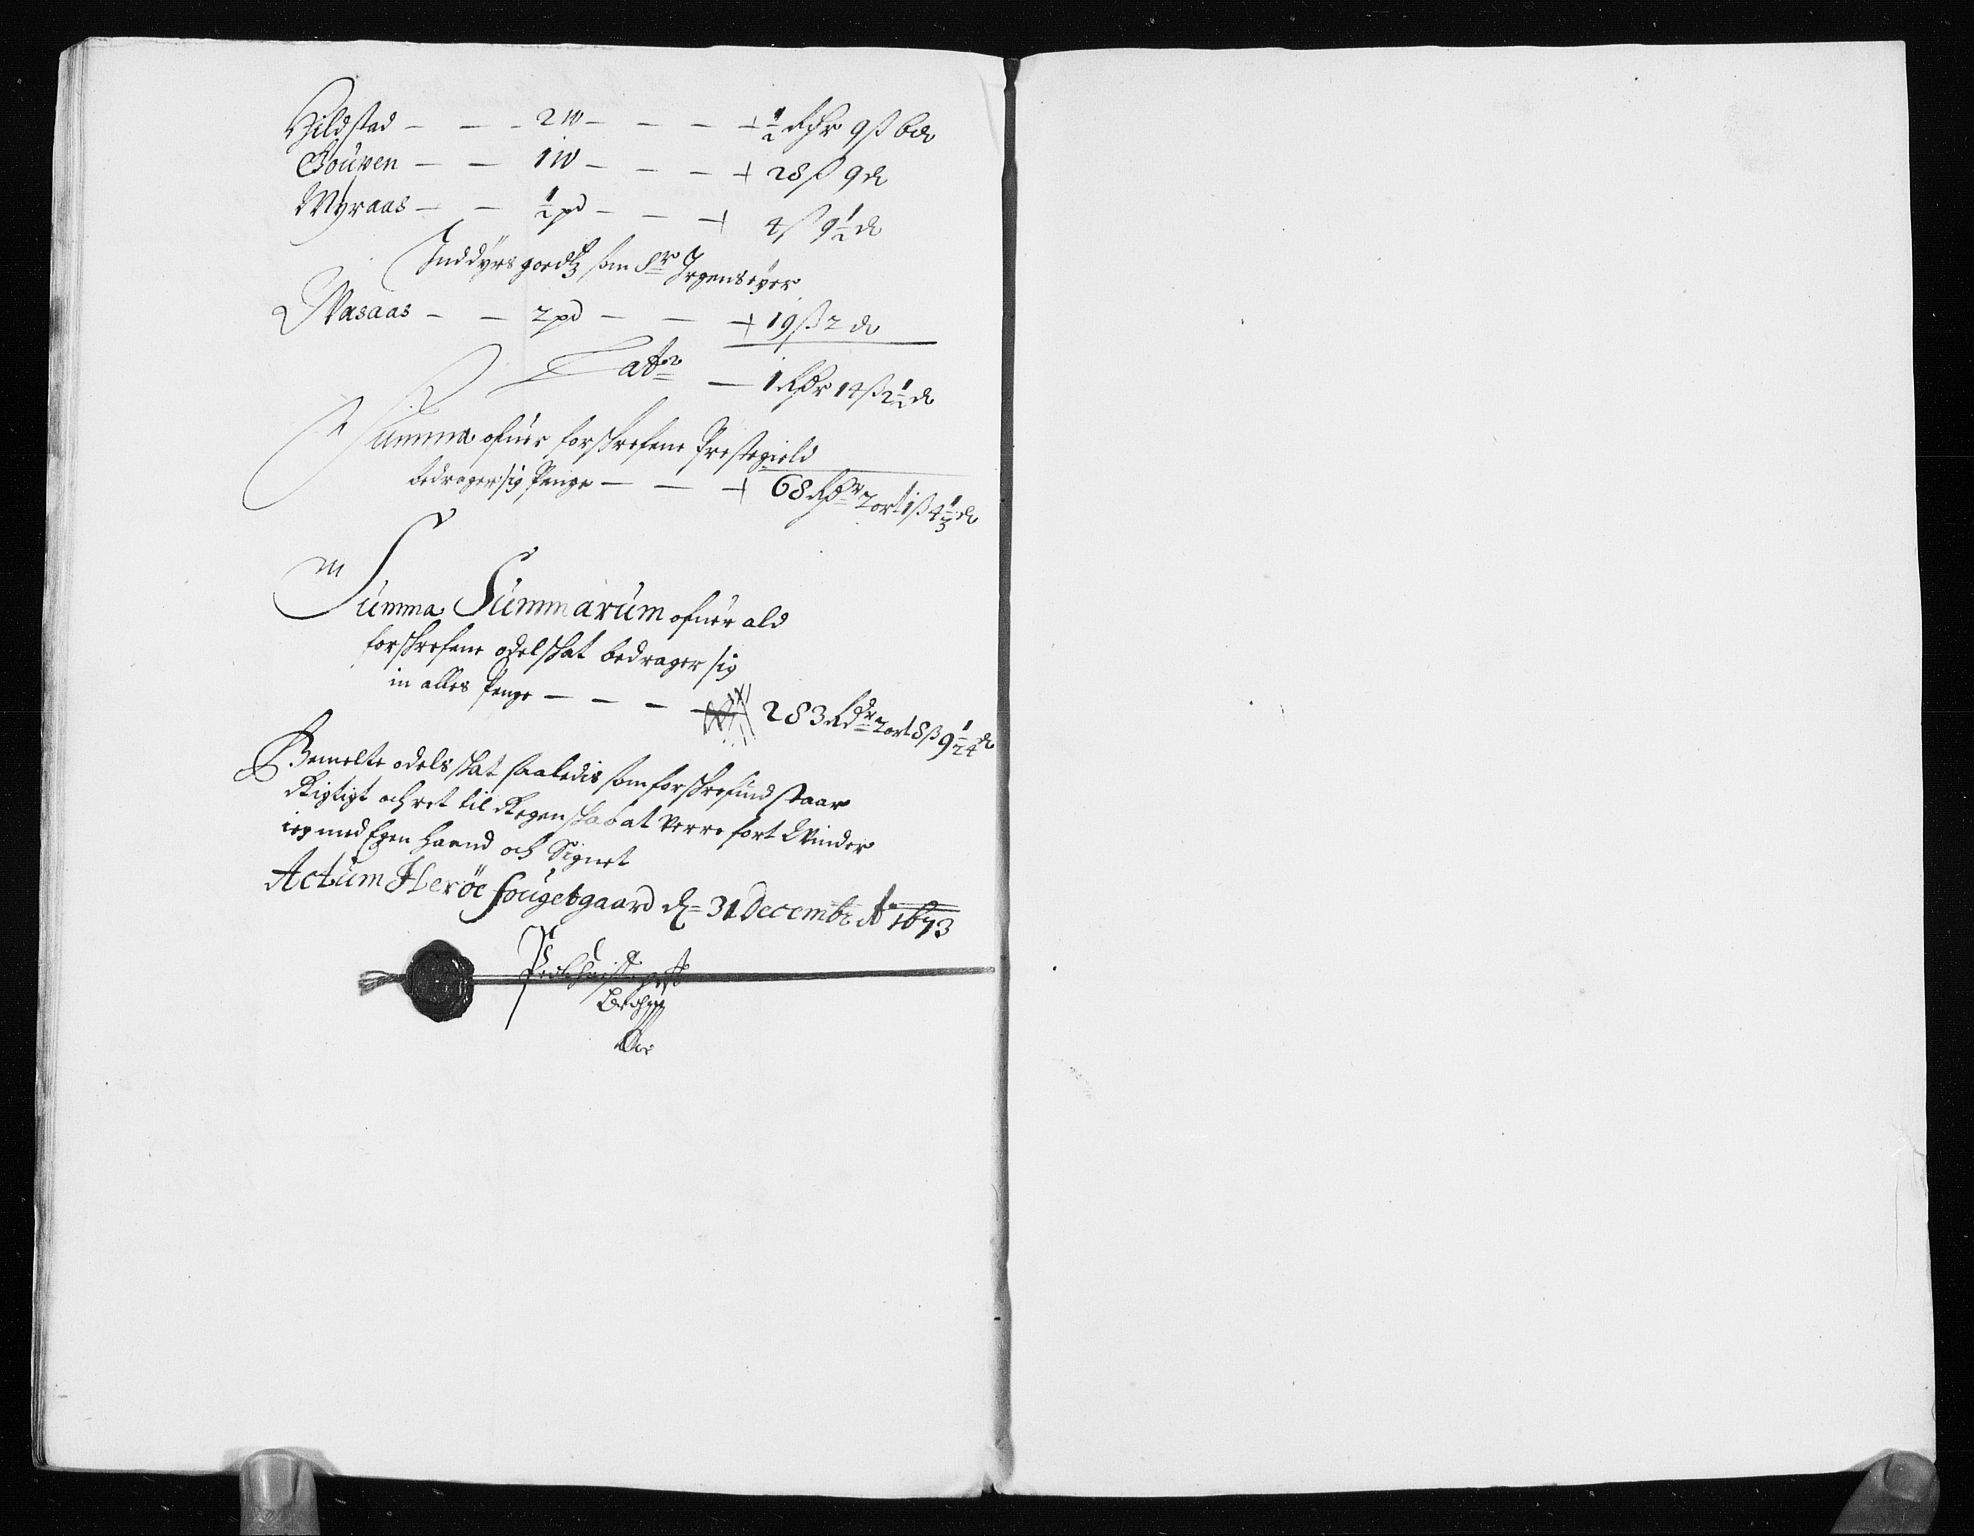 Hildstad — — — 2 W — — — — ½ Rdr 9 ß 6 d
Goupen — — 1 W — — — — 28 ß 9 d
Myraas — — ½ pd — — — 4 ß 9½ d
Inddyrs goedtz som Sr Irgens eyer
Wasaas — — 2 pd — — — 19 ß 2 d
Lats — 1 Rdr 14 ß 2½ d
Summa ofuer forschrefene Prestegield
bedrager sig Penge — — — 68 Rdr 2 ort 1 ß 4⅓ d
Summa Summarum ofuer ald
forschrefene odelschat bedrager sig
in alles Penge — — — — 283 Rdr 2 ort 8 ß 9 1/24 d
Bemelte odelsschat saaledis som forschrefuid staar
Rigtigt och ret til Regenschab at verre fort Vinder
ieg med Egen haand och Signet
Actum Herøe fougetgaard d= 31 Decembr Ao 1673